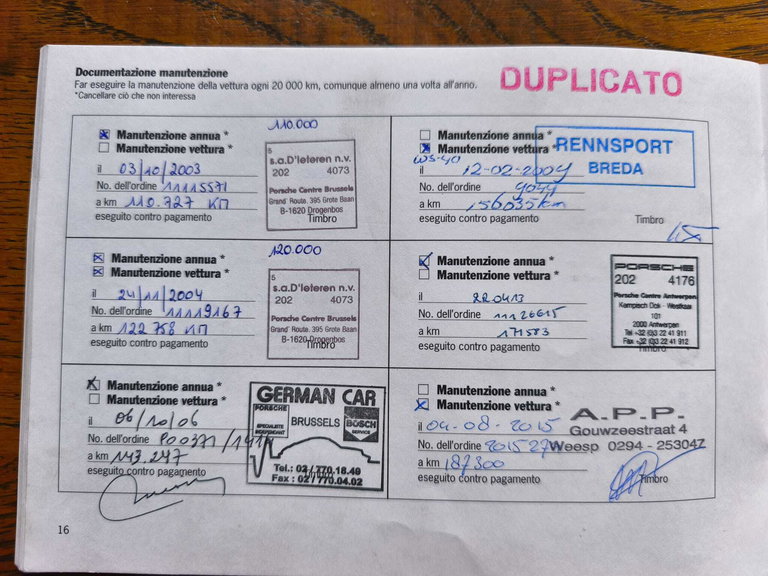 Documentazione manutenzione
Far eseguire la manutenzione della vettura ogni 20 000 km, comunque almeno una volta all'anno.
*Cancellare ciò che non interessa
DUPLICATO
Manutenzione annua *
Manutenzione vettura *
il 03/10/2003
No. dell'ordine 11115571
a km 110.727 КП
eseguito contro pagamento
110.000
5
s.a.D'Ieteren n.v.
202 4073
Porsche Centre Brussels
Grand' Route. 395 Grote Baan
B-1620 Drogenbos
Timbro
Manutenzione annua *
Manutenzione vettura *
WS-40
il 12-02-2009
No. dell'ordine 9044
a km 156035km
eseguito contro pagamento
RENNSPORT
BREDA
Timbro
Manutenzione annua *
Manutenzione vettura *
il 24/11/2004
No. dell'ordine 11119167
a km 122 758 КП
eseguito contro pagamento
120.000
5
s.a.D'Ieteren n.v.
202 4073
Porsche Centre Brussels
Grand' Route. 395 Grote Baan
B-1620 Drogenbos
Timbro
Manutenzione annua *
Manutenzione vettura *
il 220413
No. dell'ordine 11126615
a km 171583
eseguito contro pagamento
PORSCHE
202 4176
Porsche Centre Antwerpen
Kempisch Dok - Westkaai
101
2000 Antwerpen
Tel +32 (0)3 22 41 911
Fax +32 (0)3 22 41 912
Timbro
Manutenzione annua *
Manutenzione vettura *
il 06/10/06
No. dell'ordine P00371/1414
a km 143.247
eseguito contro pagamento
GERMAN CAR
PORSCHE
SPECIALISTE
INDEPENDANT
BRUSSELS
BOSCH
SERVICE
Tel.: 02/770.16.49
Fax : 02/770.04.02
Manutenzione annua *
Manutenzione vettura *
il 04-08-2015
No. dell'ordine 201527
a km 187300
eseguito contro pagamento
A.P.P.
Gouwzeestraat 4
Weesp 0294 - 253047
Timbro
16